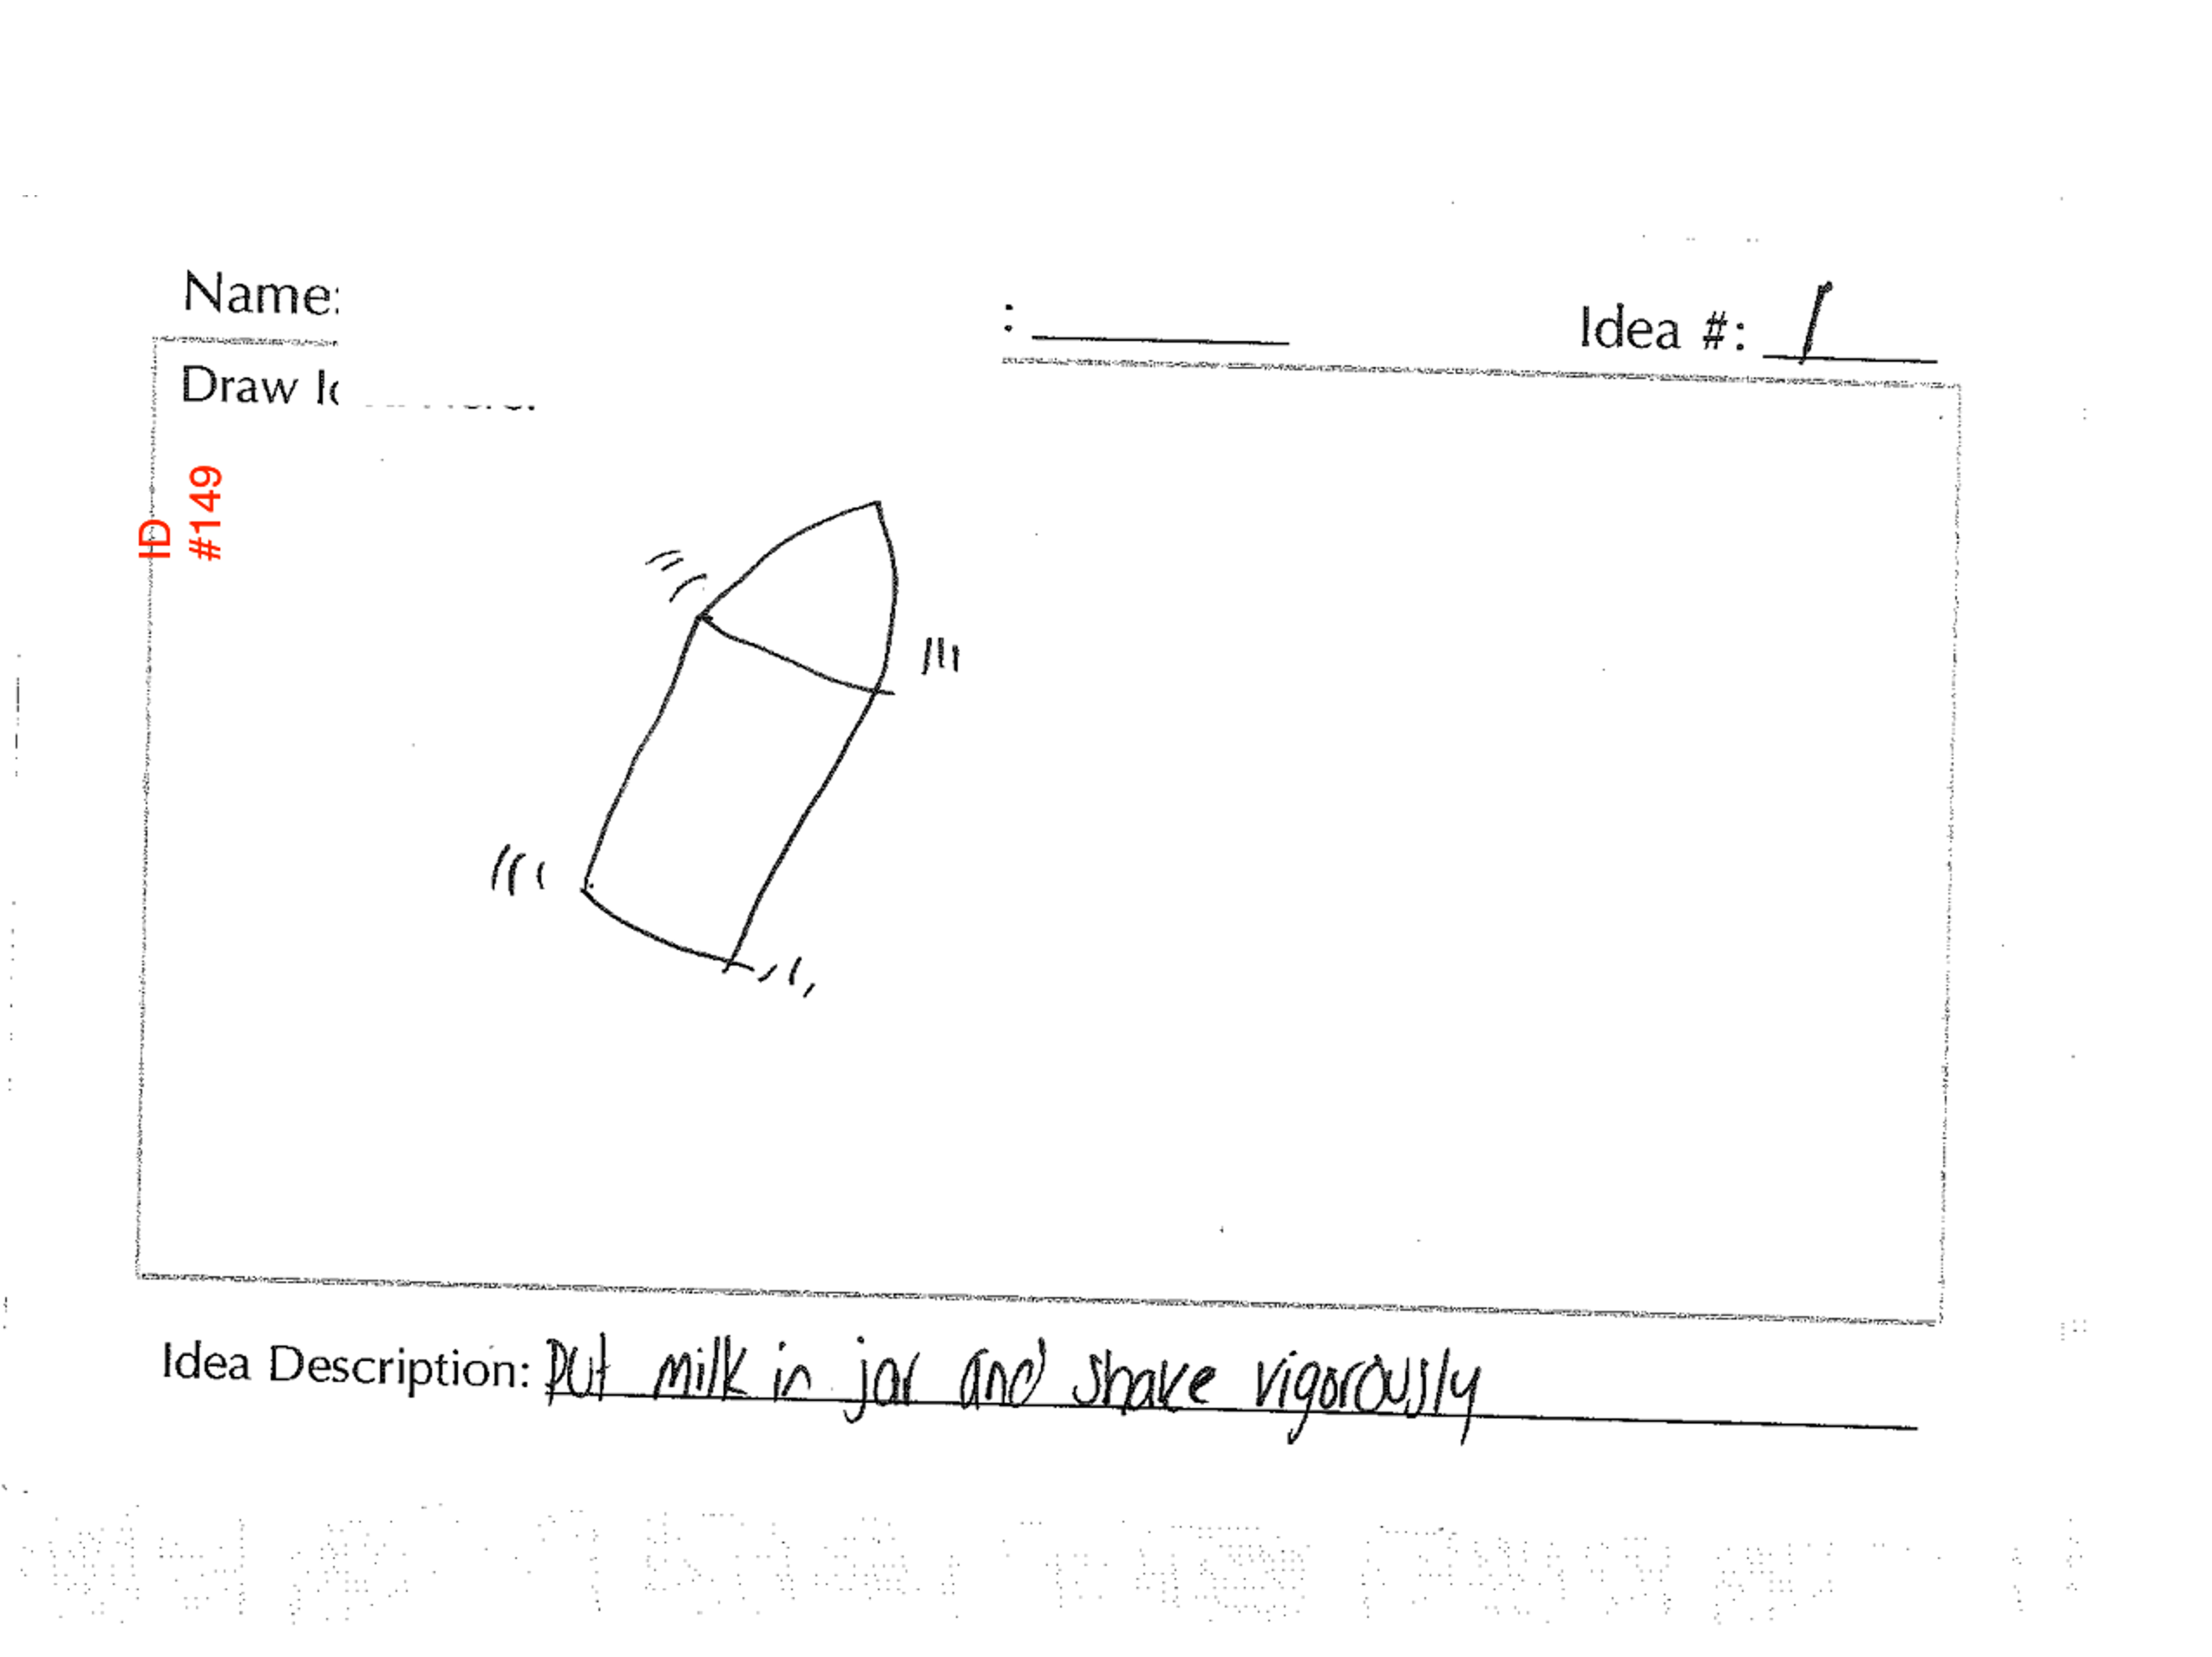 Name:
: Idea #: 1
Draw
ID
#149
Idea Description: put milk in jar and shake vigorously